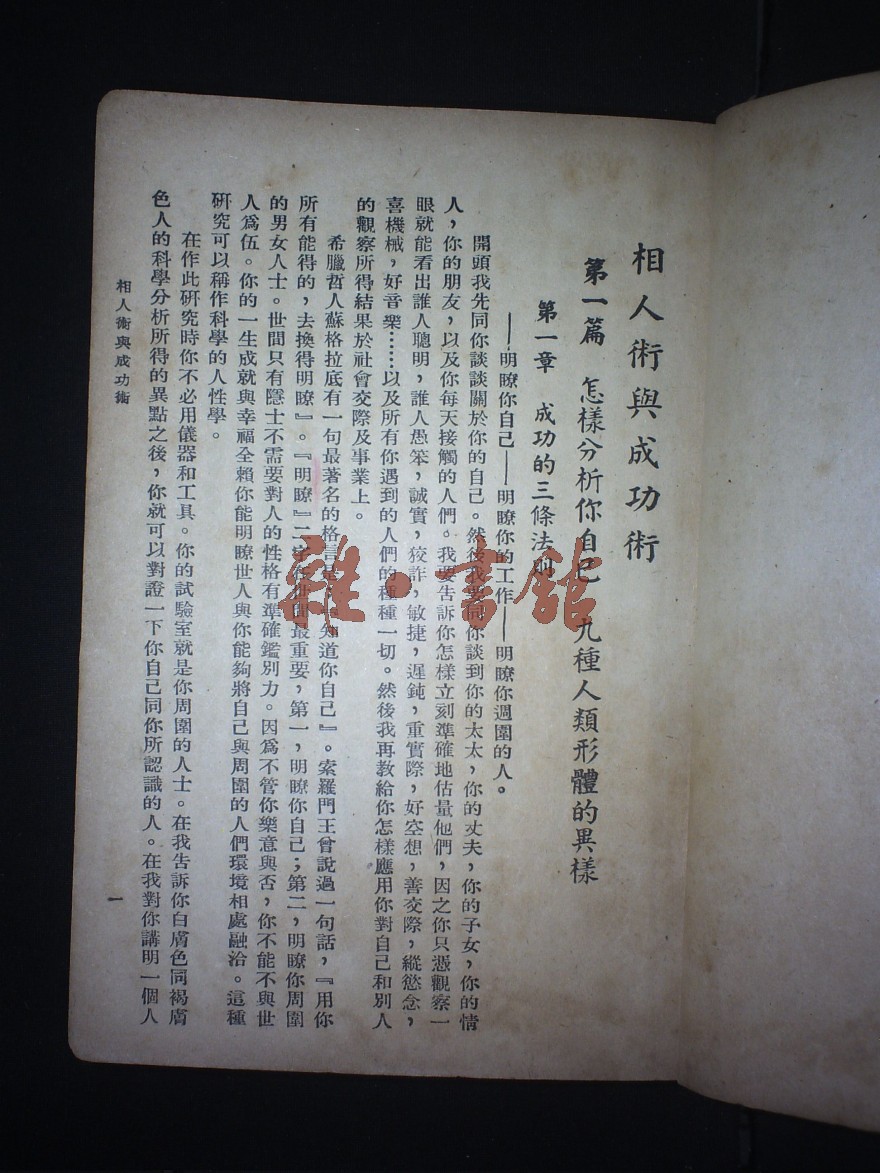 相人術與成功術
第一篇 怎樣分析你自己 九種人類形體的異樣
第一章 成功的三條法則
——明瞭你自己——明瞭你的工作——明瞭你週圍的人。
開頭我先同你談談關於你的自己。然後我要同你談到你的太太，你的丈夫，你的子女，你的情
人，你的朋友，以及你每天接觸的人們。我要告訴你怎樣立刻準確地估量他們，因之你只憑觀察一
眼就能看出誰人聰明，誰人愚笨，誠實，狡詐，敏捷，遲鈍，重實際，好空想，善交際，縱慾念，
喜機械，好音樂……以及所有你遇到的人們的種種一切。然後我再教給你怎樣應用你對自己和別人
的觀察所得結果於社會交際及事業上。
希臘哲人蘇格拉底有一句最著名的格言是『知道你自己』。索羅門王曾說過一句話，『用你
所有能得的，去換得明瞭』。『明瞭』二字在世間最重要，第一，明瞭你自己；第二，明瞭你周圍
的男女人士。世間只有隱士不需要對人的性格有準確鑑別力。因爲不管你樂意與否，你不能不與世
人爲伍。你的一生成就與幸福全賴你能明瞭世人與你能夠將自己與周圍的人們環境相處融洽。這種
研究可以稱作科學的人性學。
在作此研究時你不必用儀器和工具。你的試驗室就是你周圍的人士。在我告訴你白膚色同褐膚
色人的科學分析所得的異點之後，你就可以對證一下你自己同你所認識的人。在我對你講明一個人
相人術與成功術
一
雜·書館